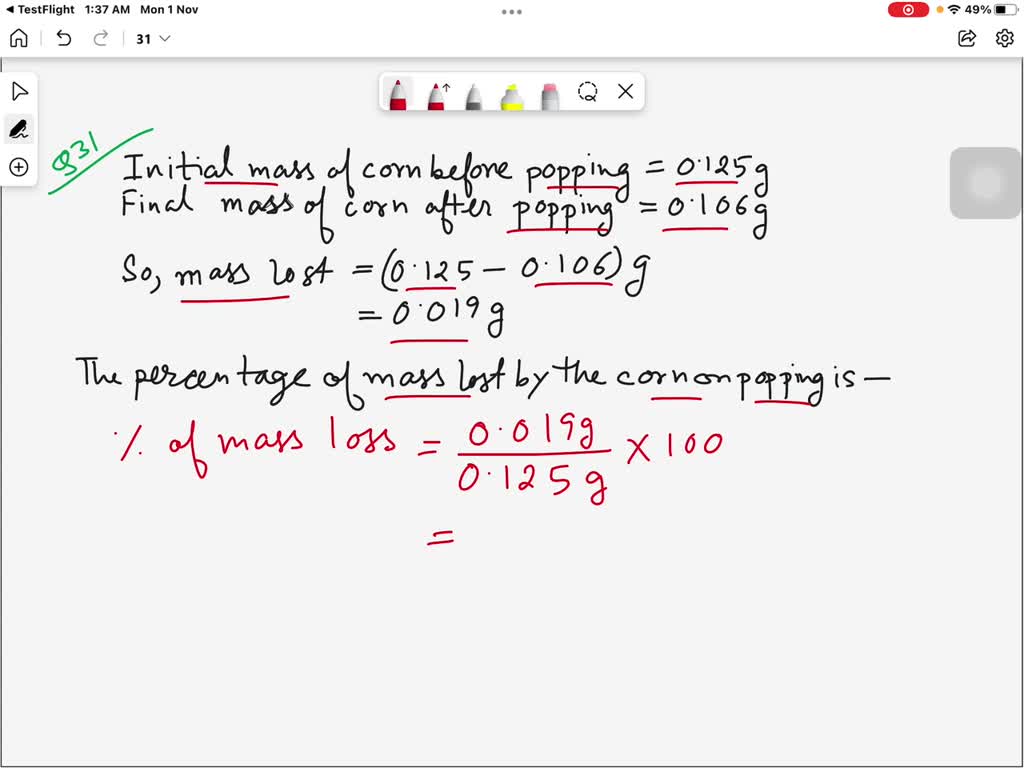 TestFlight 1:37 AM Mon 1 Nov
49%
31
Q31
Initial mass of corn before popping = 0.125g
Final mass of corn after popping = 0.106g
So, mass lost = (0.125 - 0.106) g
= 0.019 g
The percentage of mass lost by the corn on popping is —
% of mass loss = 0.019g
0.125 g
× 100
=